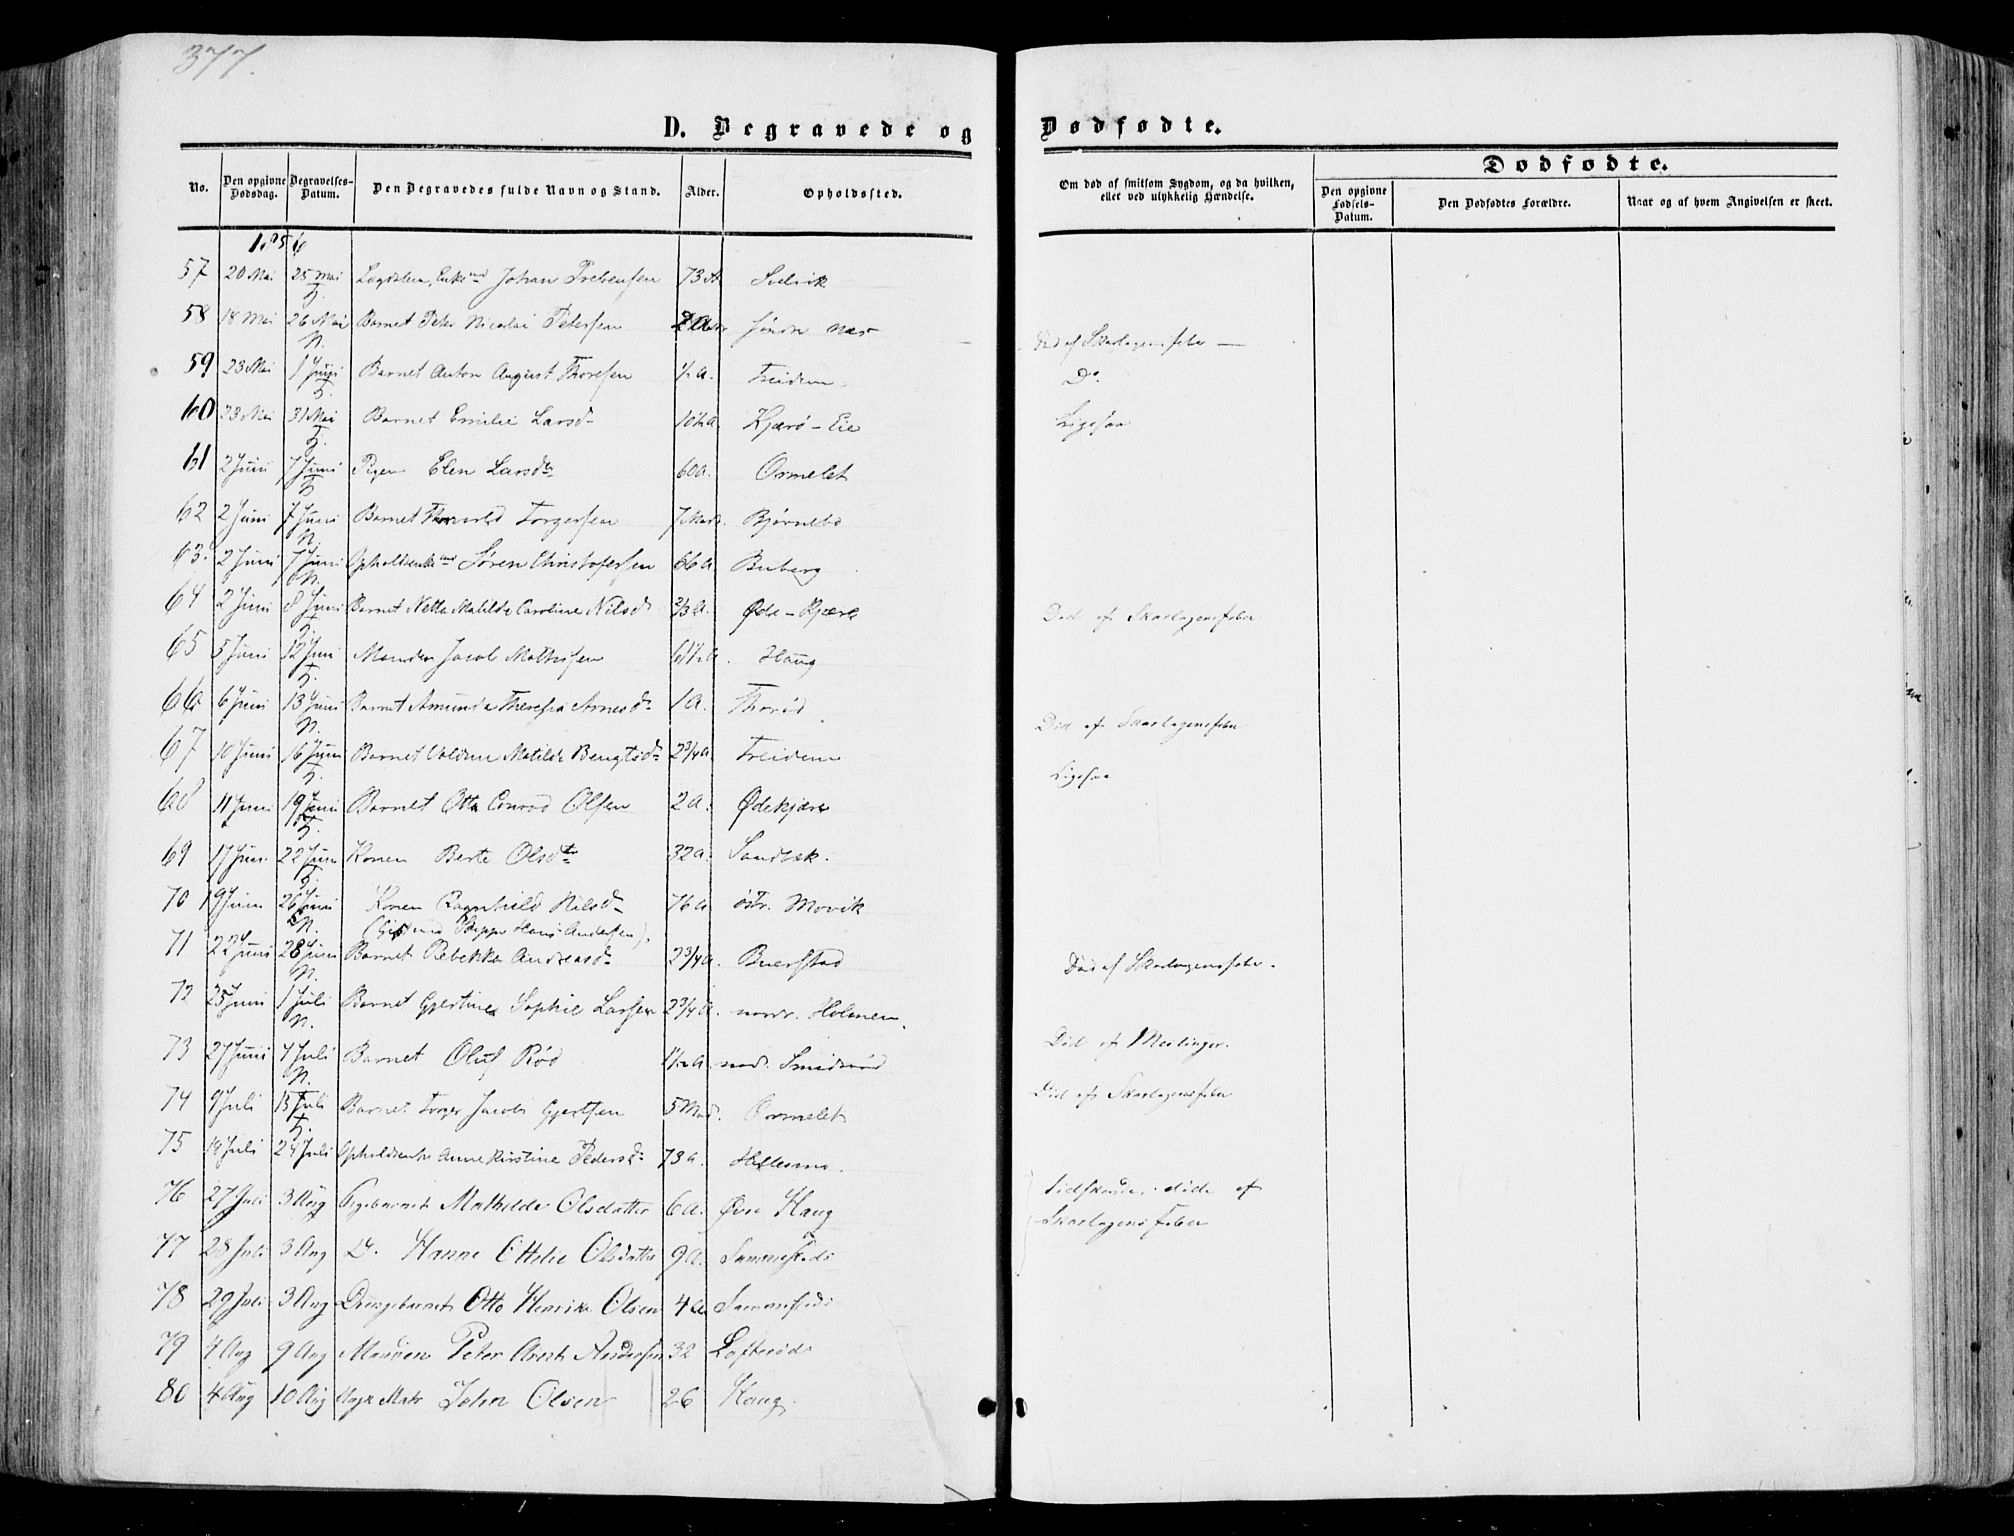 377.
D. Begravede og Dødfødte.
No. Den opgivne Dødsdag. Begravelses-Datum. Den Begravedes fulde Navn og Stand. Alder. Opholdssted.
Om død af smitsom Sygdom, og da hvilken, eller ved ulykkelig Hændelse.
Dødfødte.
Den opgivne Fødsels-Datum. Den Dødfødtes Forældre. Naar og af hvem Angivelsen er skeet.
1856
57 20 Mai 25 Mai Johan 73 A Selvik
58 18 Mai 26 Mai Barnet Peter Nicolai Petersen Død af Skarlagensfeber
59 23 Mai 1 Juni Barnet Anton August Thoresen ½ A. Treidene D°.
60 23 Mai 31 Mai Barnet Emilie Larsd. 10½ A Kjærø-Eie Ligesaa
61 2 Juni 7 Juni Pigen Elen Larsdtr 60 A. Ormelet
62 2 Juni 7 Juni Barnet Thorvald Torgersen 7 Mdr. Bjørnebo
63. 2 Juni 7 Juni Søren Christofersen 66 A Buberg
64 2 Juni 8 Juni Barnet Nette Matilde Caroline Nilsd. ⅔ A. Øde-Kjære Død af Skarlagensfeber
65 5 Juni 12 Juni Manden Jacob Mathisen 61½ A. Haug
66 6 Juni 13 Juni Barnet Amunda Theresia Arnesd. 1 A. Thorød Død af Skarlagensfeber
67 10 Juni 16 Juni Barnet Matilde Bengtsd. 2¾ A. Treidene Ligesaa
68 11 Juni 19 Juni Barnet Otto Conrad Olsen 2 A. Ødekjære
69 17 Juni 22 Juni Konen Berte Olsdtr 32 A. Sandbæk.
70 19 Juni 26 Juni Konen Ragnhild Nilsd. 76 A østr. Movik
Hans Andersen).
71 22 Juni 28 Juni Barnet Rebekka Andreasd. 2¾ A. Buerstad Død af Skarlagensfeber.
72 25 Juni 1 Juli Barnet Gjertine Sophie Larsen 2¾ A. nordr. Holmen.
73 27 Juni 7 Juli Barnet Oluf Rød 1½ A nord. Smidsrød Død af Meslinger.
74 9 Juli 15 Juli Barnet Torger Jacob Gjertsen 5 Mdr. Ormelet Død af Skarlagensfeber
75 18 Juli 24 Juli Anne Kirstine Pedersd. 73 A.
76 27 Juli 3 Aug Pigebarnet Mathilde Olsdatter 6 A. Øvre Haug Sødskende, døde af
Skarlagensfeber
77 28 Juli 3 Aug D. Hanne Ottelie Olsdatter 9 A. Sammesteds
78 29 Juli 3 Aug Drengebarnet Otto Henrik Olsen 4 A. Sammesteds
79 4 Aug 9 Aug Manden Peter Andersen 32 Lofterød
80 4 Aug 10 Aug John Olsen 26 Haug